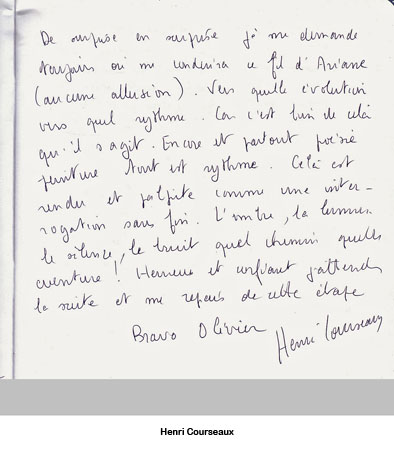 De surprise en surprise je me demande
toujours où me conduira ce fil d'Ariane
(aucune allusion). Vers quelle évolution
vers quel rythme. Car c'est bien de celà
qu'il s'agit. Encore et partout poésie
peinture tout est rythme. Celà est
rendu et palpite comme une inter-
rogation sans fin. L'ombre, la lumière
le silence, le bruit quel chemin quelle
aventure ! Heureux et confiant j'attends
la suite et me repais de cette étape
Bravo Olivier
Henri Courseaux
Henri Courseaux